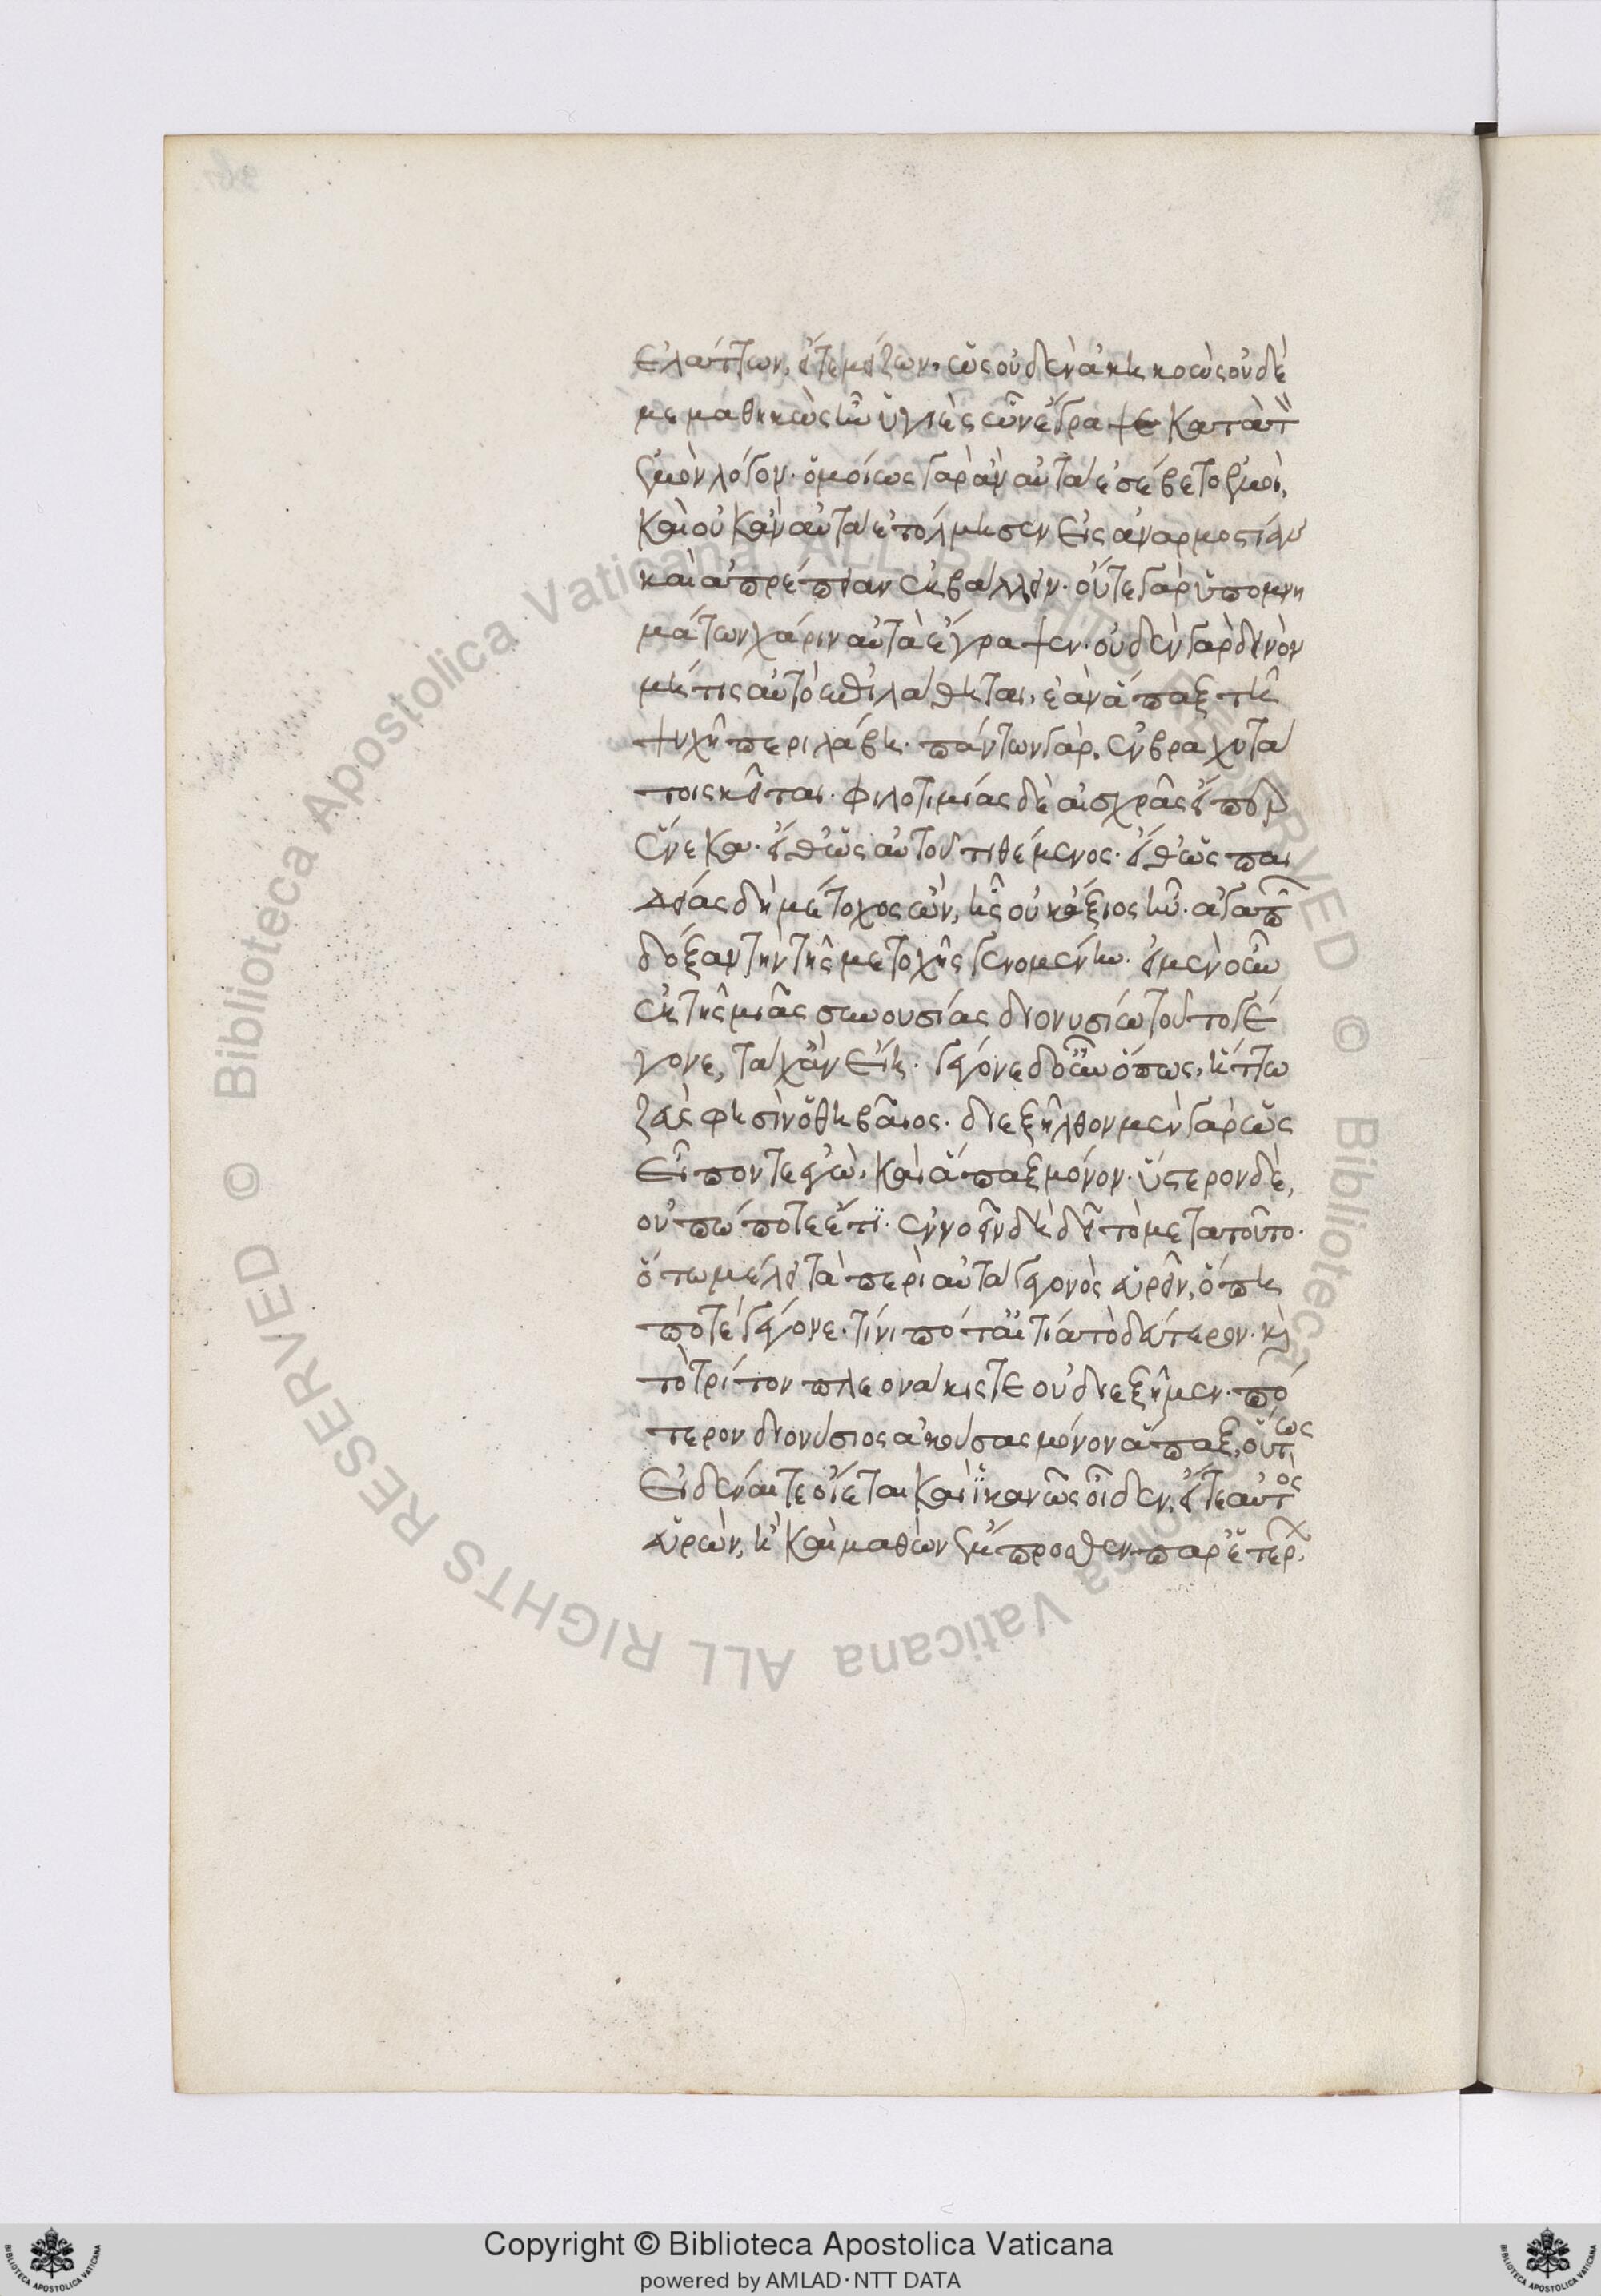 ἐλάττων, εἴτε μείζων, ὡς οὐδὲν ἀκηκοὼς οὐδὲ
μεμαθηκὼς ἦν ὑγιὲς ὧν ἔγραψε κατὰ τ
ἐμὸν λόγον· ὁμοίως γὰρ ἂν αὐτὰ ἐσέβετο ἐμοὶ,
καὶ οὐκ ἂν αὐτὰ ἐτόλμησεν εἰς ἀναρμοστίαν
καὶ ἀπρέπειαν ἐκβάλλειν· οὔτε γὰρ ὑπομνη
μάτων χάριν αὐτὰ ἔγραψεν· οὐδὲν γὰρ δεινὸν
μή τις αὐτὸ ἐπιλάθηται, ἐὰν ἅπαξ τῇ
ψυχῇ περιλάβῃ· πάντων γὰρ, ἐν βραχυτά
τοις κεῖται· φιλοτιμίας δὲ αἰσχρᾶς εἴπερ
ἕνεκα· εἴθ' ὡς αὑτοῦ τιθέμενος· εἴθ' ὡς παι
δείας δὴ μέτοχος ὢν, ἧς οὐκ ἄξιος ἦν· ἀγαπ
δόξαν τὴν τῆς μετοχῆς γενομένην· εἰ μὲν οὖν
ἐκ τῆς μιᾶς συνουσίας διονυσίῳ τοῦτο γέ
γονε, τάχ' ἂν εἴη· γέγονε δ' οὖν ὅπως, ἴττω
ζεὺς φησὶν ὁ θηβαῖος· διεξῆλθον μὲν γὰρ ὡς
εἶπόν τε ἐγὼ, καὶ ἅπαξ μόνον· ὕστερον δὲ,
οὐ πώποτε ἔτι· ἐννοεῖν δὴ δεῖ τὸ μετὰ τοῦτο·
ὅτῳ μέλει τὰ περὶ αὐτὰ γεγονὸς εὑρεῖν, ὅπῃ
ποτὲ γέγονε· τίνι ποτ' αἰτίᾳ τὸ δεύτερον· καὶ
τὸ τρίτον πλεονάκις τε οὐ διεξῇμεν· πό
τερον διονύσιος ἀκούσας μόνον ἅπαξ, οὕτως
εἰδέναι τε οἴεται καὶ ἱκανῶς οἶδεν, εἴτε αὐτὸς
εὑρὼν, ἢ καὶ μαθὼν ἔμπροσθεν παρ' ἑτέρ
Copyright © Biblioteca Apostolica Vaticana
powered by AMLAD·NTT DATA